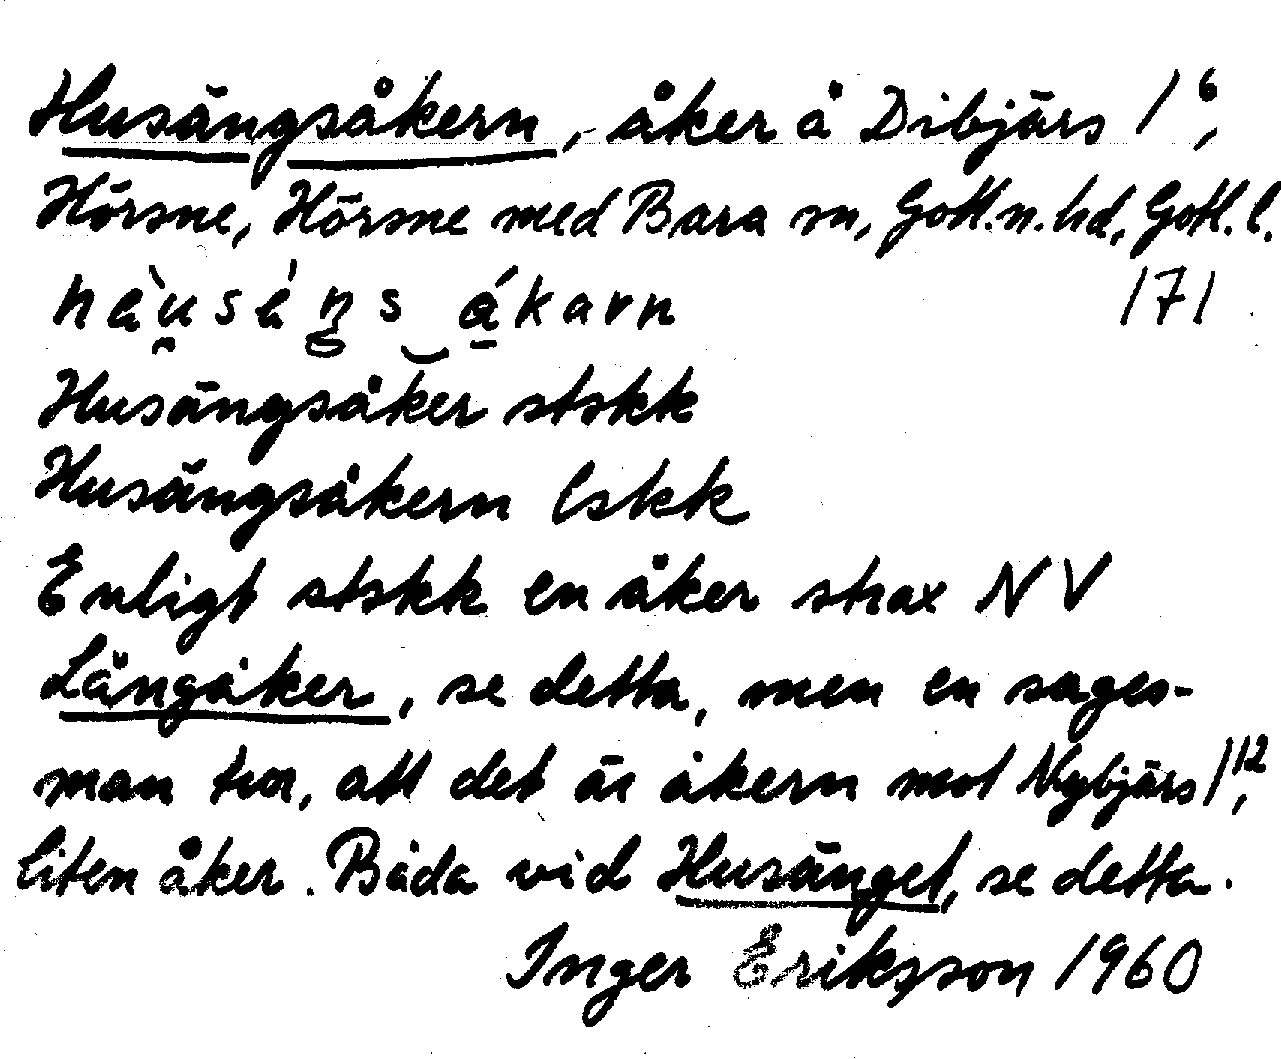 Husängsåkern, åker å Dibjärs 1⁶,
Hörsne, Hörsne med Bara sn, Gotl.n.hd, Gotl.l.
hàu̯sèŋs‿ákarn 171
Husängsåker stskk
Husängsåkern lskk
Enligt stskk en åker strax NV
Långåker, se detta, men en sages-
man tror, att det är åkern mot Nybjärs 1¹²,
liten åker. Båda vid Husänget, se detta.
Inger Eriksson 1960